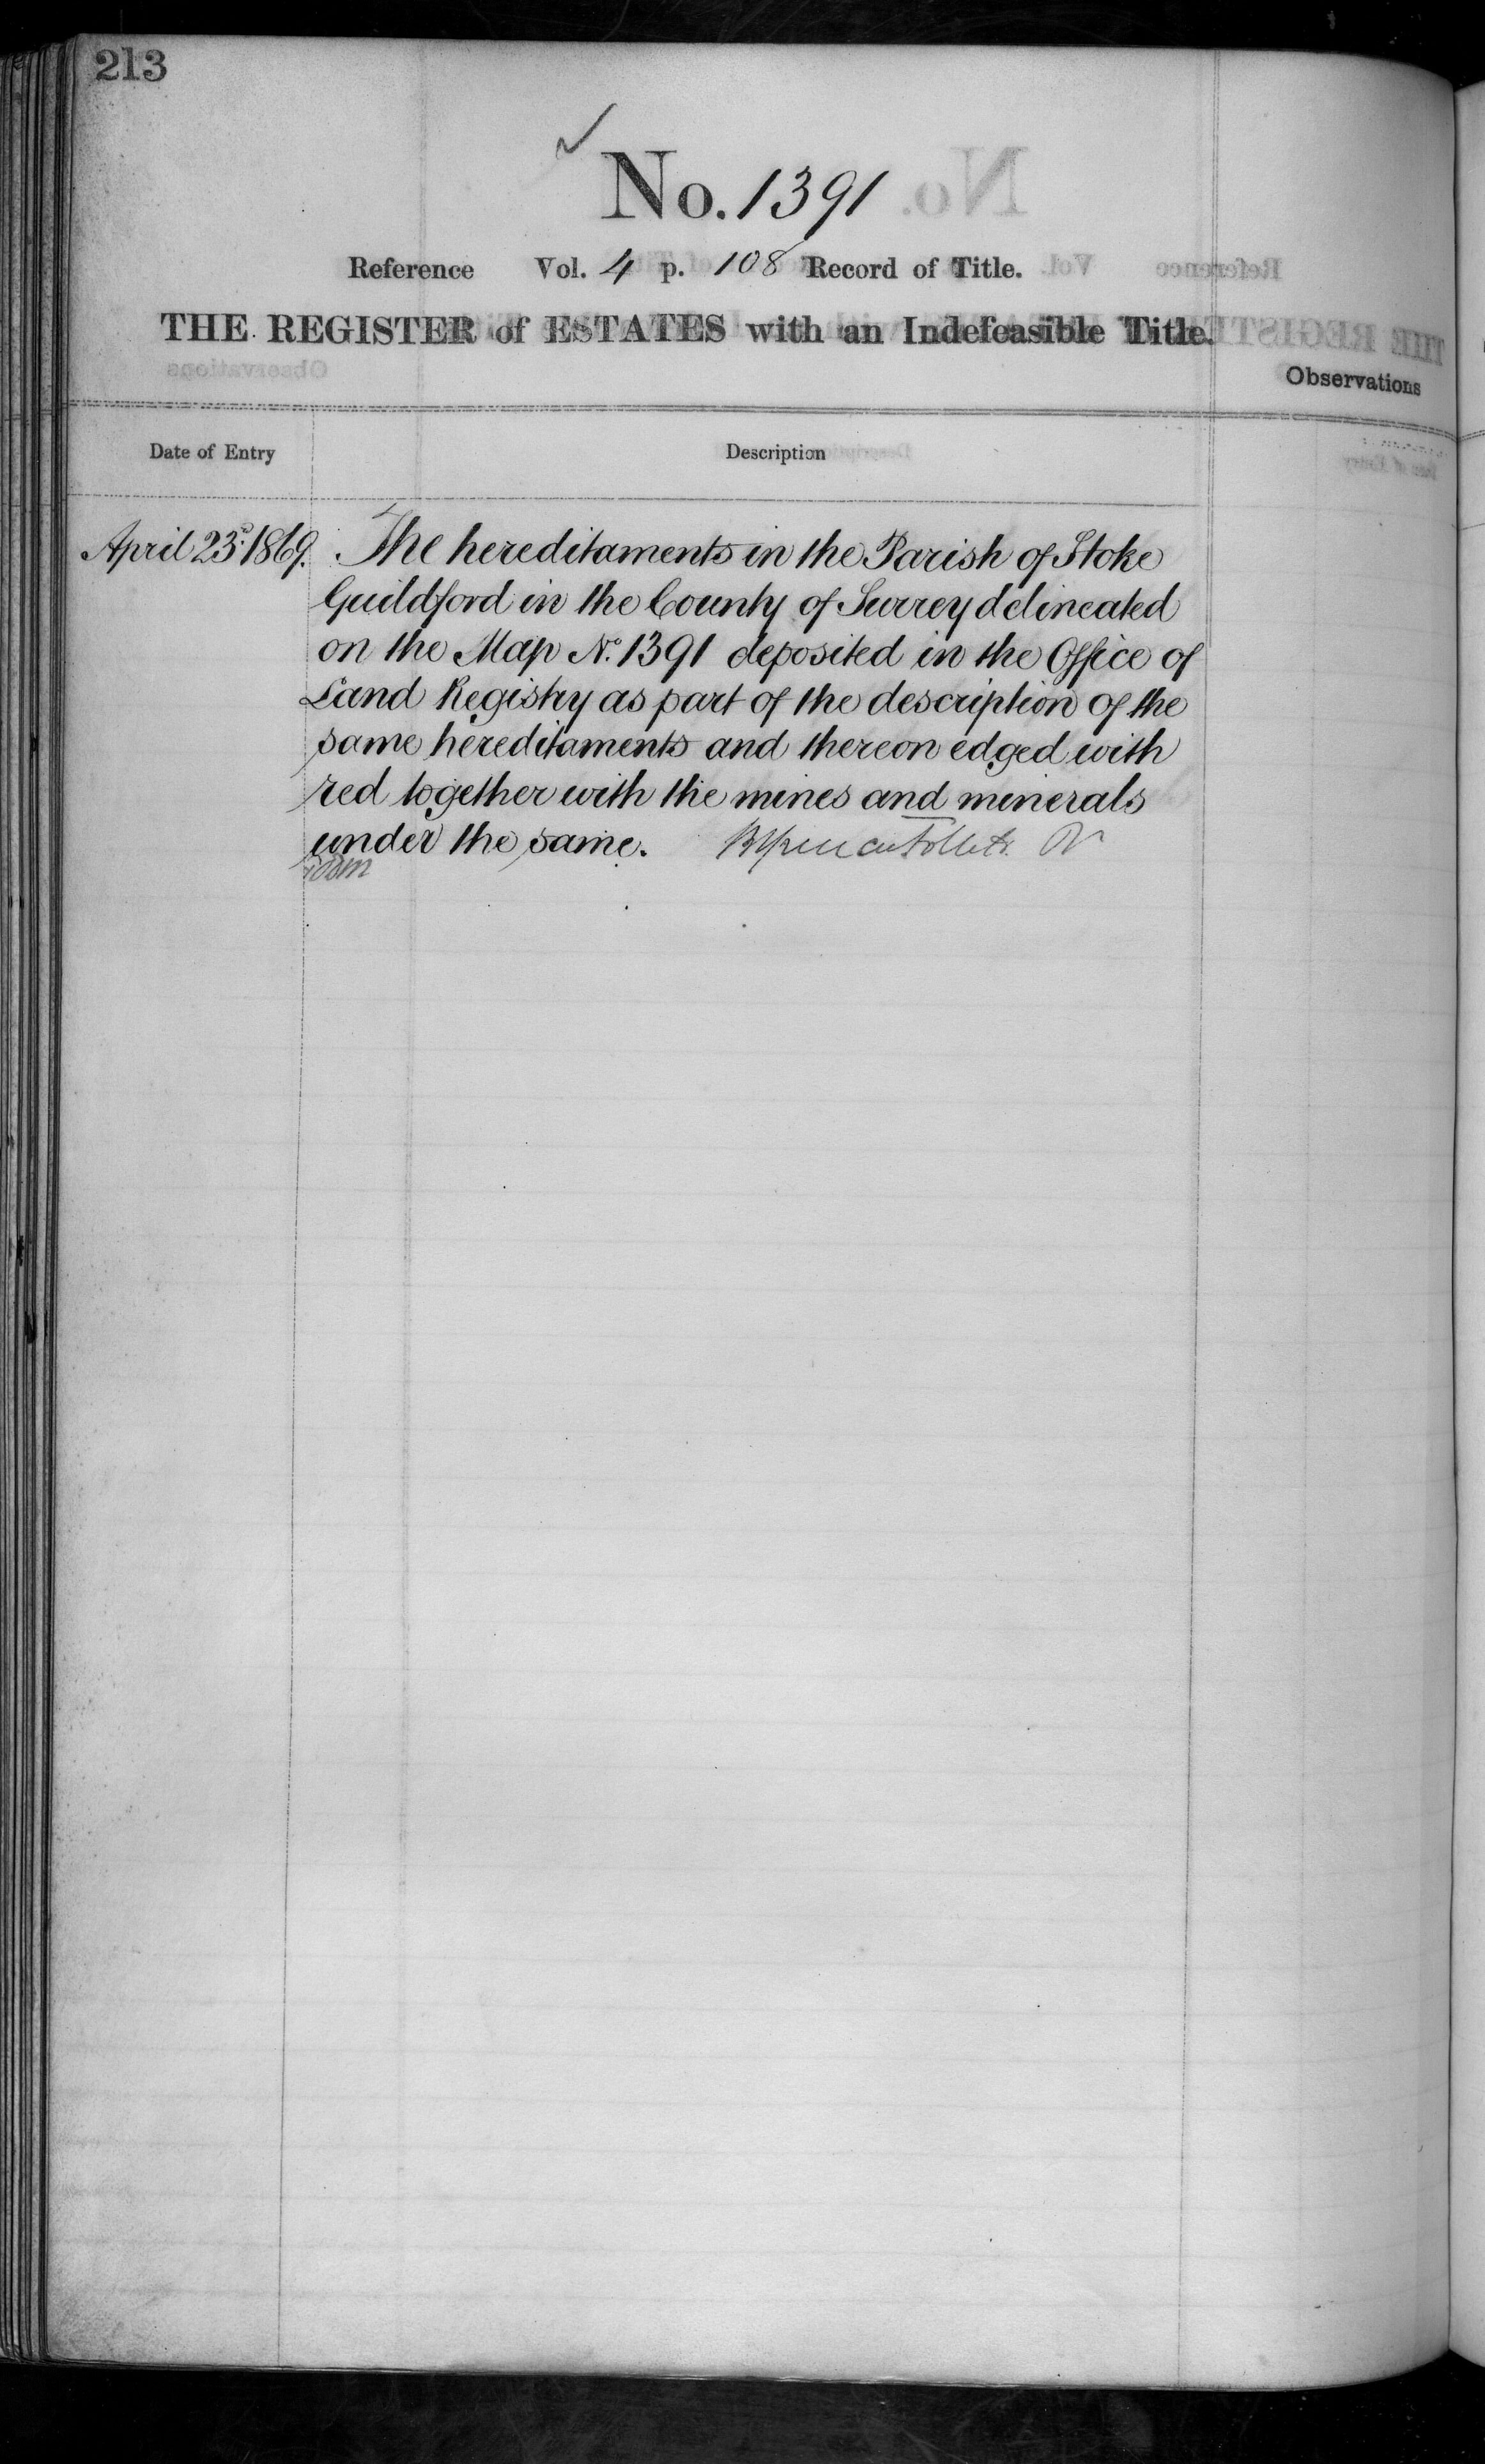 213
No. 1391
Reference Vol. 4 p. 108 Record of Title.
THE REGISTER of ESTATES with an Indefeasible Title.
Observations
Date of Entry
Description
April 23d. 1869.
The hereditaments in the Parish of Stoke
Guildford in the County of Surrey delineated
on the Map No. 1391 deposited in the Office of
Land Registry as part of the description of the
same hereditaments and thereon edged with
red together with the mines and minerals
under the same.